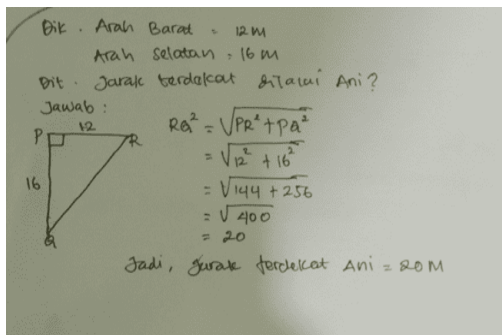 Dik . Arah Barat = 12 M
Arah Selatan = 16 M
Dit . Jarak terdekat dilalui Ani ?
Jawab :
P 12 R
16
Q
RQ² = √PR² + PQ²
= √12² + 16²
= √144 + 256
= √400
= 20
Jadi, Jarak terdekat Ani = 20 M